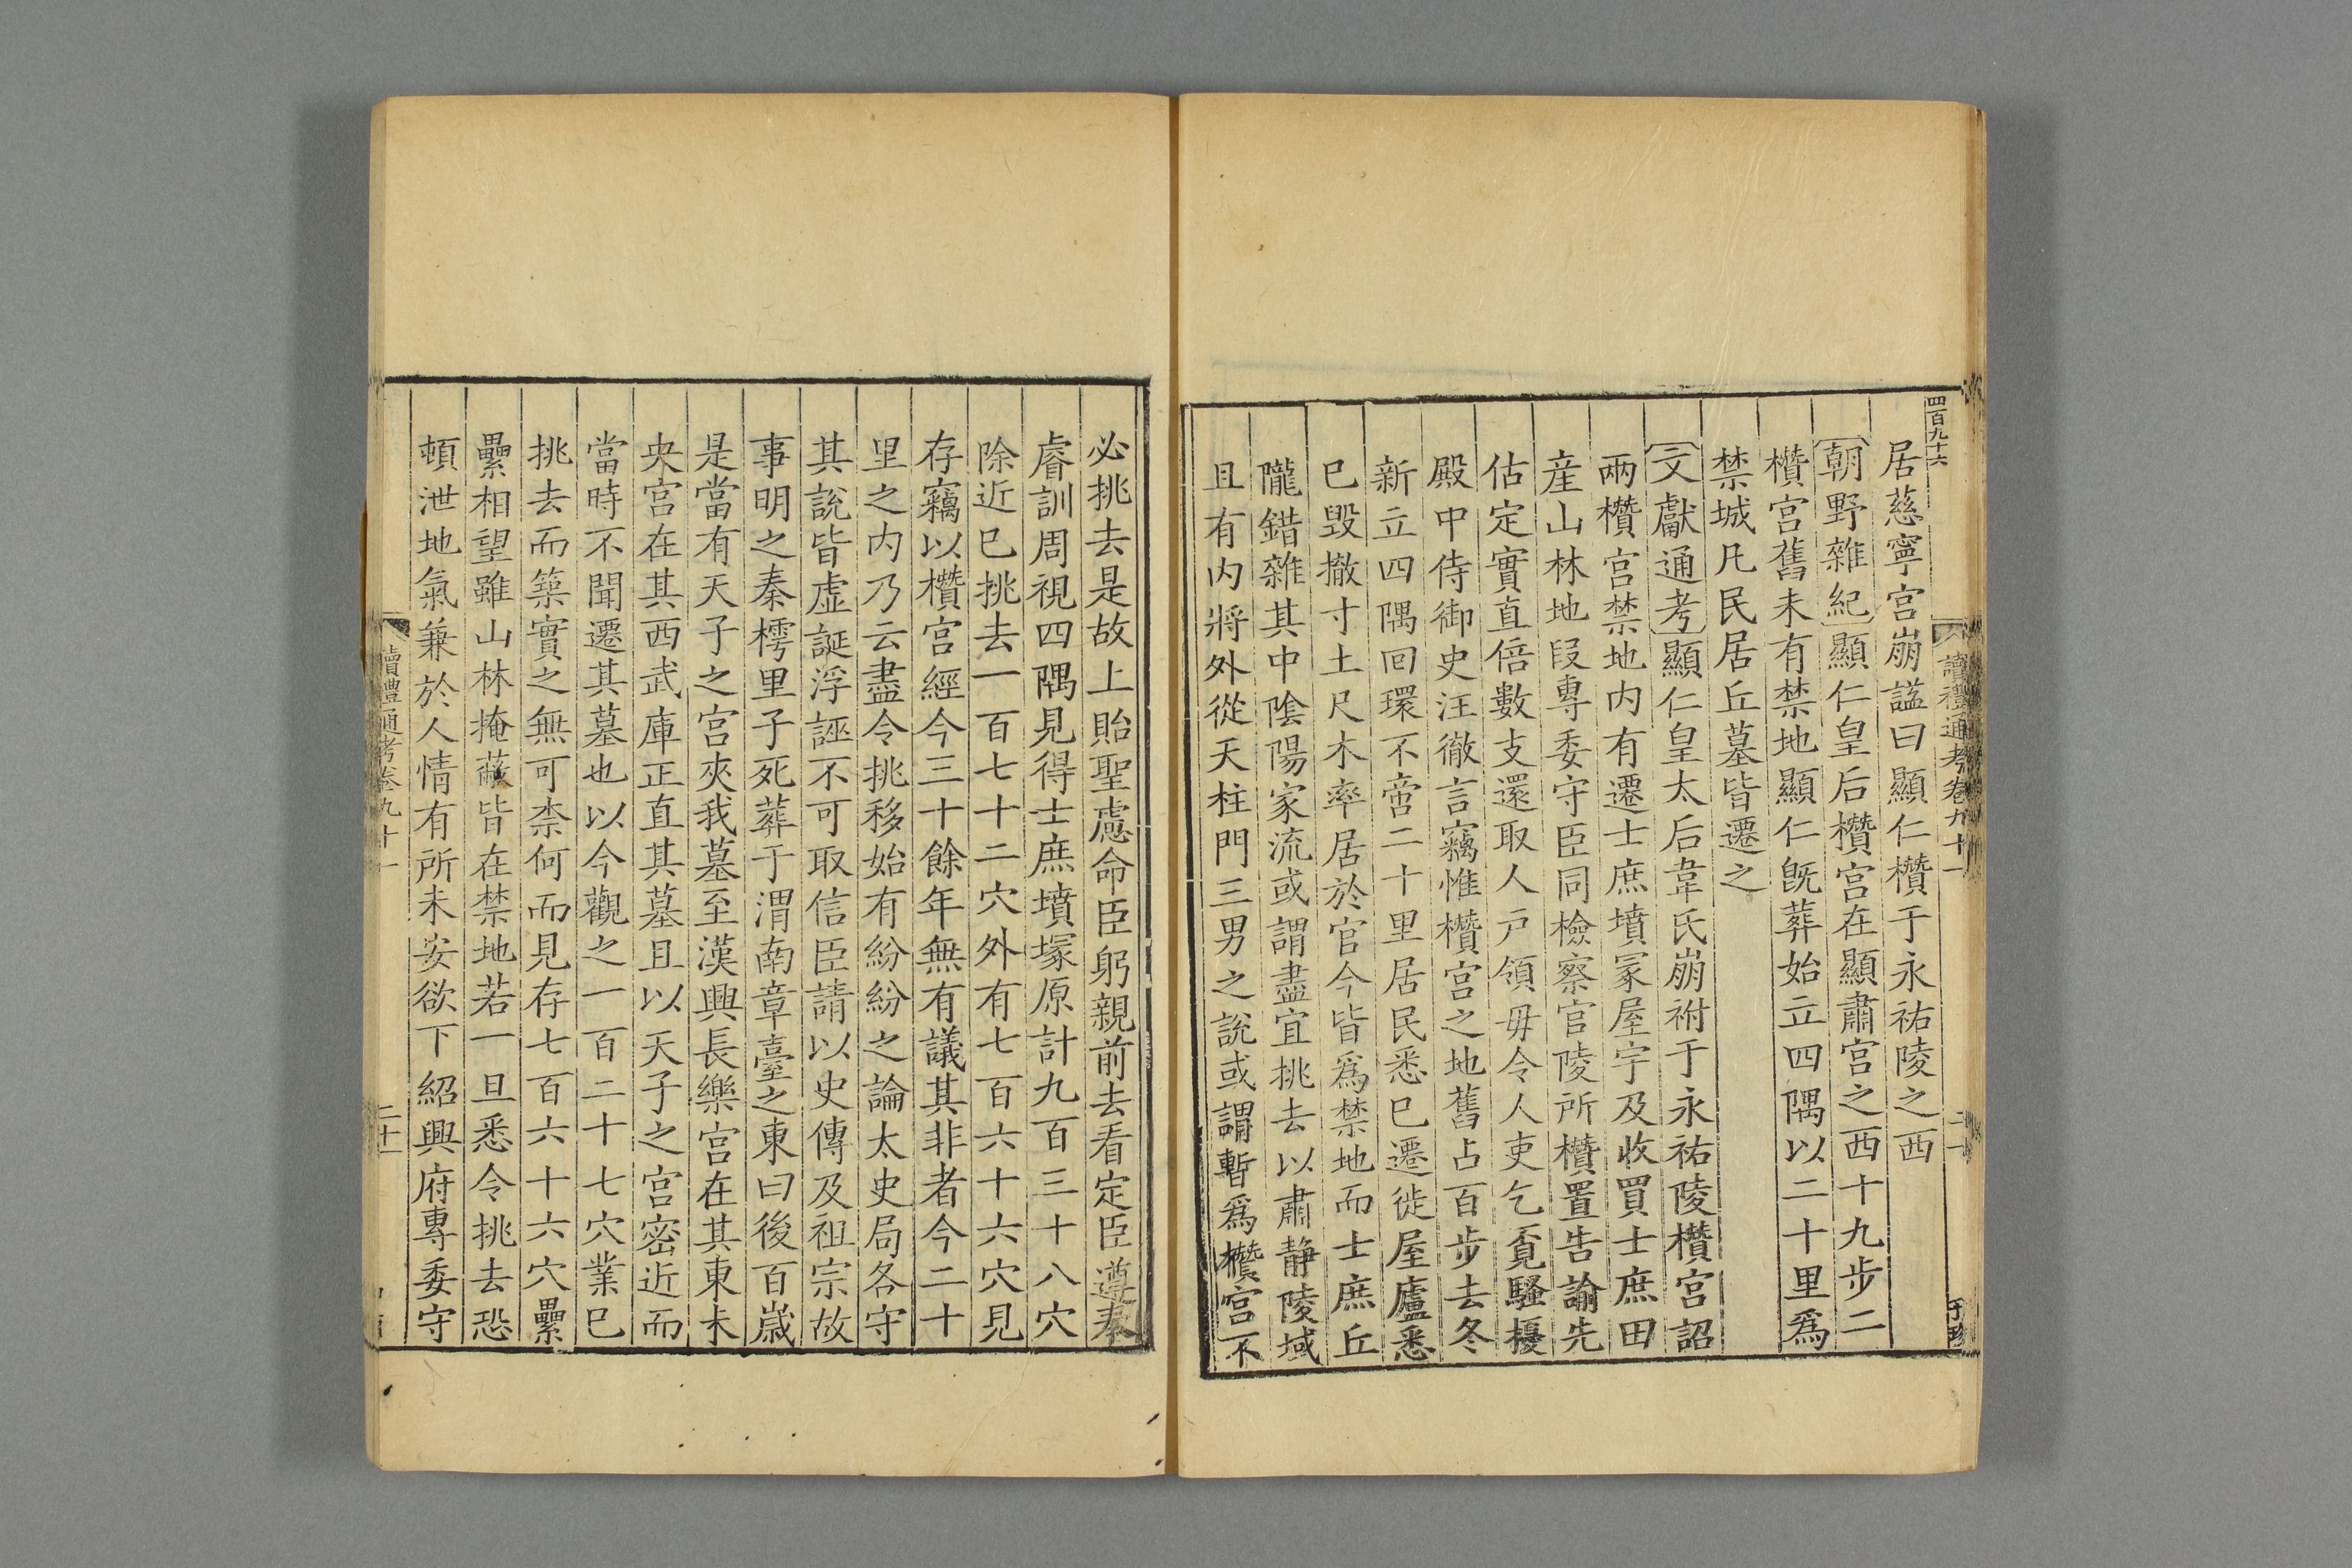 四百九十六
讀禮通考卷九十一
二十
居慈寧宮崩謚曰顯仁欑于永祐陵之西
朝野雜紀顯仁皇后欑宮在顯肅宮之西十九步二
欑宮舊未有禁地顯仁旣葬始立四隅以二十里爲
禁城凡民居丘墓皆遷之
文獻通考顯仁皇太后韋氏崩祔于永祐陵欑宮詔
兩欑宮禁地内有遷士庶墳冢屋宇及收買士庶田
産山林地段專委守臣同檢察官陵所欑置告諭先
估定實直倍數支還取人戸領毋令人吏乞覔騷擾
殿中侍御史汪徹言竊惟欑宮之地舊占百步去冬
新立四隅回環不啻二十里居民悉已遷徙屋廬悉
已毁撤寸土尺木率居於官今皆爲禁地而士庶丘
隴錯雜其中陰陽家流或謂盡宜挑去以肅靜陵域
且有内將外從天柱門三男之說或謂暫爲欑宮不
必挑去是故上貽聖慮命臣躬親前去看定臣遵奉
睿訓周視四隅見得士庶墳塚原計九百三十八穴
除近已挑去一百七十二穴外有七百六十六穴見
存竊以欑宮經今三十餘年無有議其非者今二十
里之内乃云盡令挑移始有紛紛之論太史局各守
其說皆虚誕浮誣不可取信臣請以史傳及祖宗故
事明之秦樗里子死葬于渭南章臺之東曰後百歲
是當有天子之宮夾我墓至漢興長樂宮在其東未
央宮在其西武庫正直其墓且以天子之宮密近而
當時不聞遷其墓也以今觀之一百二十七穴業已
挑去而築實之無可柰何而見存七百六十六穴纍
纍相望雖山林掩蔽皆在禁地若一旦悉令挑去恐
頓泄地氣兼於人情有所未安欲下紹興府專委守
讀禮通考卷九十一
二十一